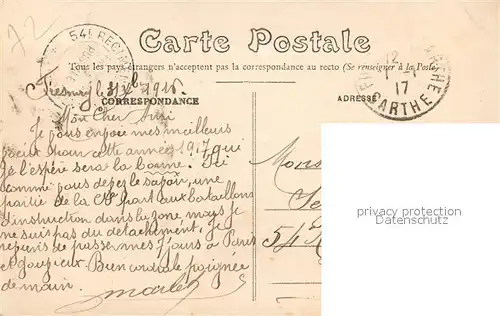 72
54E REGIM
Carte Postale
Tous les pays étrangers n'acceptent pas la correspondance au recto (Se renseigner à la Poste)
Fresnay le 31 Xb 1916.
CORRESPONDANCE
ADRESSE
17
SARTHE
Mon Cher Ami
Je vous envoie mes meilleurs
pour cette année 1917 qui
je l'espère sera la bonne. Ici
comme vous devez le savoir, une
partie de la Cie part aux bataillons
d'instruction dans la zone mais je
ne suis pas du détachement. Je
de passer mes 7 jours à Paris
et Bien cordiale poignée
de main.
Mons
54
privacy protection
Datenschutz